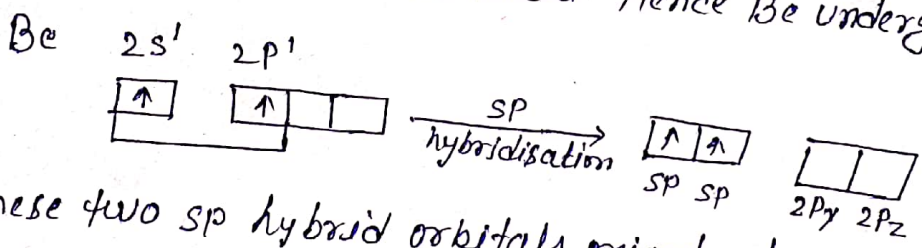 Hence Be underg
Be 2s¹ 2p¹
↑ ↑ sp hybridisation ↑ ↑
sp sp 2Py 2Pz
hese two sp hybrid orbitals